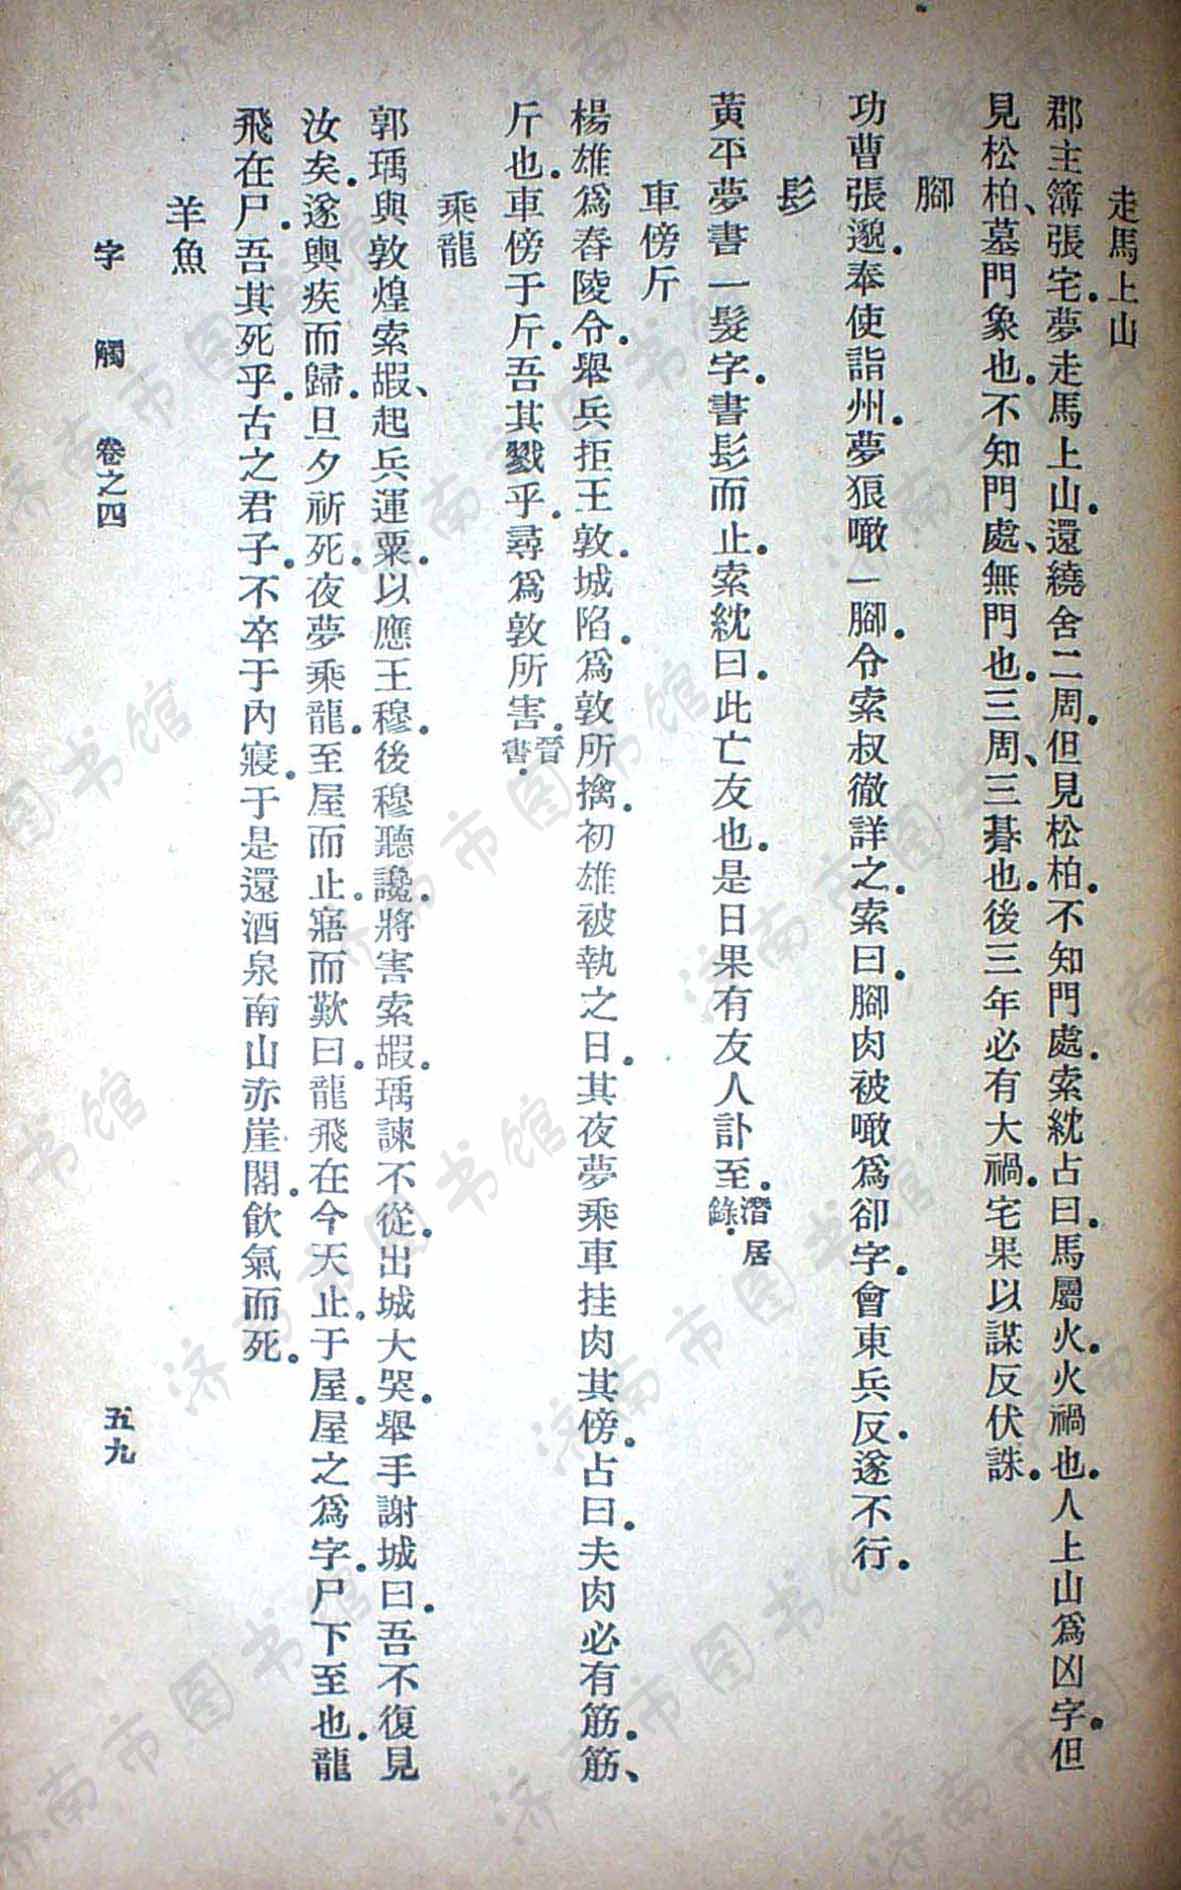 走馬上山
郡主簿張宅。夢走馬上山。還繞舍二周。但見松柏。不知門處。索紞占曰。馬屬火。火禍也。人上山爲凶字。但
見松柏、墓門象也。不知門處、無門也。三周、三朞也。後三年必有大禍。宅果以謀反伏誅。
腳
功曹張邈。奉使詣州。夢狼噉一腳。令索叔徹詳之。索曰。腳肉被噉爲卻字。會東兵反。遂不行。
髟
黃平夢書一髮字。書髟而止。索紞曰。此亡友也。是日果有友人訃至。潛居錄。
車傍斤
楊雄爲舂陵令。舉兵拒王敦。城陷。爲敦所擒。初雄被執之日。其夜夢乘車挂肉其傍。占曰。夫肉必有筋。筋、
斤也。車傍于斤。吾其戮乎。尋爲敦所害。晉書。
乘龍
郭瑀與敦煌索嘏、起兵運粟。以應王穆。後穆聽讒。將害索嘏。瑀諫不從。出城大哭。舉手謝城曰。吾不復見
汝矣。遂輿疾而歸。旦夕祈死。夜夢乘龍。至屋而止。寤而歎曰。龍飛在今天止。于屋。屋之爲字。尸下至也。龍
飛在尸。吾其死乎。古之君子。不卒于內寢。于是還酒泉南山赤崖閣。飲氣而死。
羊魚
字觸 卷之四 五九
济南市图书馆